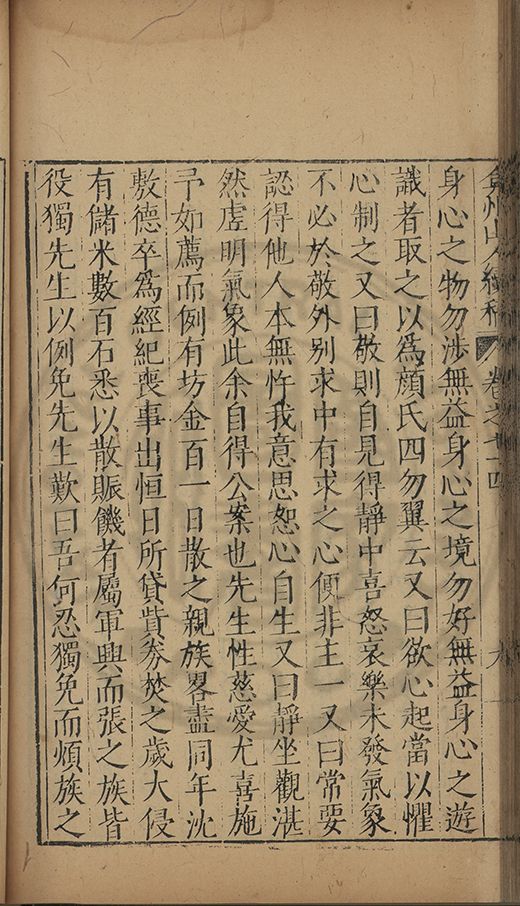 弇州山人續稿 卷之七十四 九
身心之物勿涉無益身心之境勿好無益身心之遊
識者取之以為顏氏四勿翼云又曰欲心起當以懼
心制之又曰敬則自見得靜中喜怒哀樂未發氣象
不必於敬外别求中有求之心便非主一又曰常要
認得他人本無忤我意思恕心自生又曰靜坐觀湛
然虛明氣象此余自得公案也先生性慈愛尤喜施
予如薦而例有坊金百一日散之親族畧盡同年沈
敷德卒為經紀喪事出恒日所貸貲劵焚之歲大侵
有儲米數百石悉以散賑饑者屬軍興而張之族皆
役獨先生以例免先生歎曰吾何忍獨免而煩族之